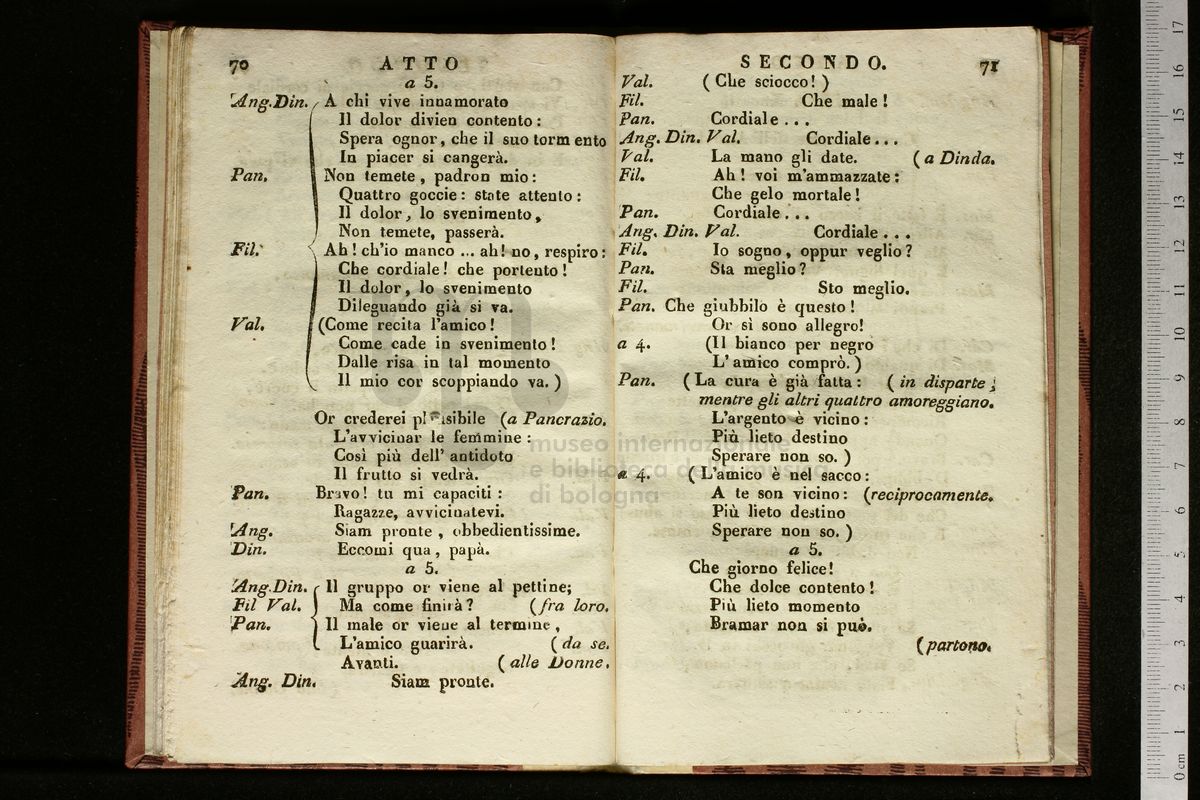 70 ATTO
a 5.
Ang. Din. A chi vive innamorato
Il dolor divien contento:
Spera ognor, che il suo torm ento
In piacer si cangerà.
Pan. Non temete, padron mio:
Quattro goccie: state attento:
Il dolor, lo svenimento,
Non temete, passerà.
Fil. Ah! ch'io manco ... ah! no, respiro:
Che cordiale! che portento!
Il dolor, lo svenimento
Dileguando già si va.
Val. (Come recita l'amico!
Come cade in svenimento!
Dalle risa in tal momento
Il mio cor scoppiando va.)
Or crederei plausibile (a Pancrazio.
L'avvicinar le femmine:
Così più dell' antidoto
Il frutto si vedrà.
Pan. Bravo! tu mi capaciti:
Ragazze, avvicinatevi.
Ang. Siam pronte, obbedientissime.
Din. Eccomi qua, papà.
a 5.
Ang. Din. Il gruppo or viene al pettine;
Fil Val. Ma come finirà? (fra loro.
Pan. Il male or viene al termine,
L'amico guarirà. (da se.
Avanti. (alle Donne.
Ang. Din. Siam pronte.
SECONDO. 71
Val. (Che sciocco!)
Fil. Che male!
Pan. Cordiale...
Ang. Din. Val. Cordiale...
Val. La mano gli date. (a Dinda.
Fil. Ah! voi m'ammazzate:
Che gelo mortale!
Pan. Cordiale...
Ang. Din. Val. Cordiale...
Fil. Io sogno, oppur veglio?
Pan. Sta meglio?
Fil. Sto meglio.
Pan. Che giubbilo è questo!
Or sì sono allegro!
a 4. (Il bianco per negro
L'amico comprò.)
Pan. (La cura è già fatta: (in disparte;
mentre gli altri quattro amoreggiano.
L'argento è vicino:
Più lieto destino
Sperare non so.)
a 4. (L'amico è nel sacco:
A te son vicino: (reciprocamente.
Più lieto destino
Sperare non so.)
a 5.
Che giorno felice!
Che dolce contento!
Più lieto momento
Bramar non si può.
(partono.
museo internazionale
e biblioteca della musica
di bologna
0 cm 1 2 3 4 5 6 7 8 9 10 11 12 13 14 15 16 17